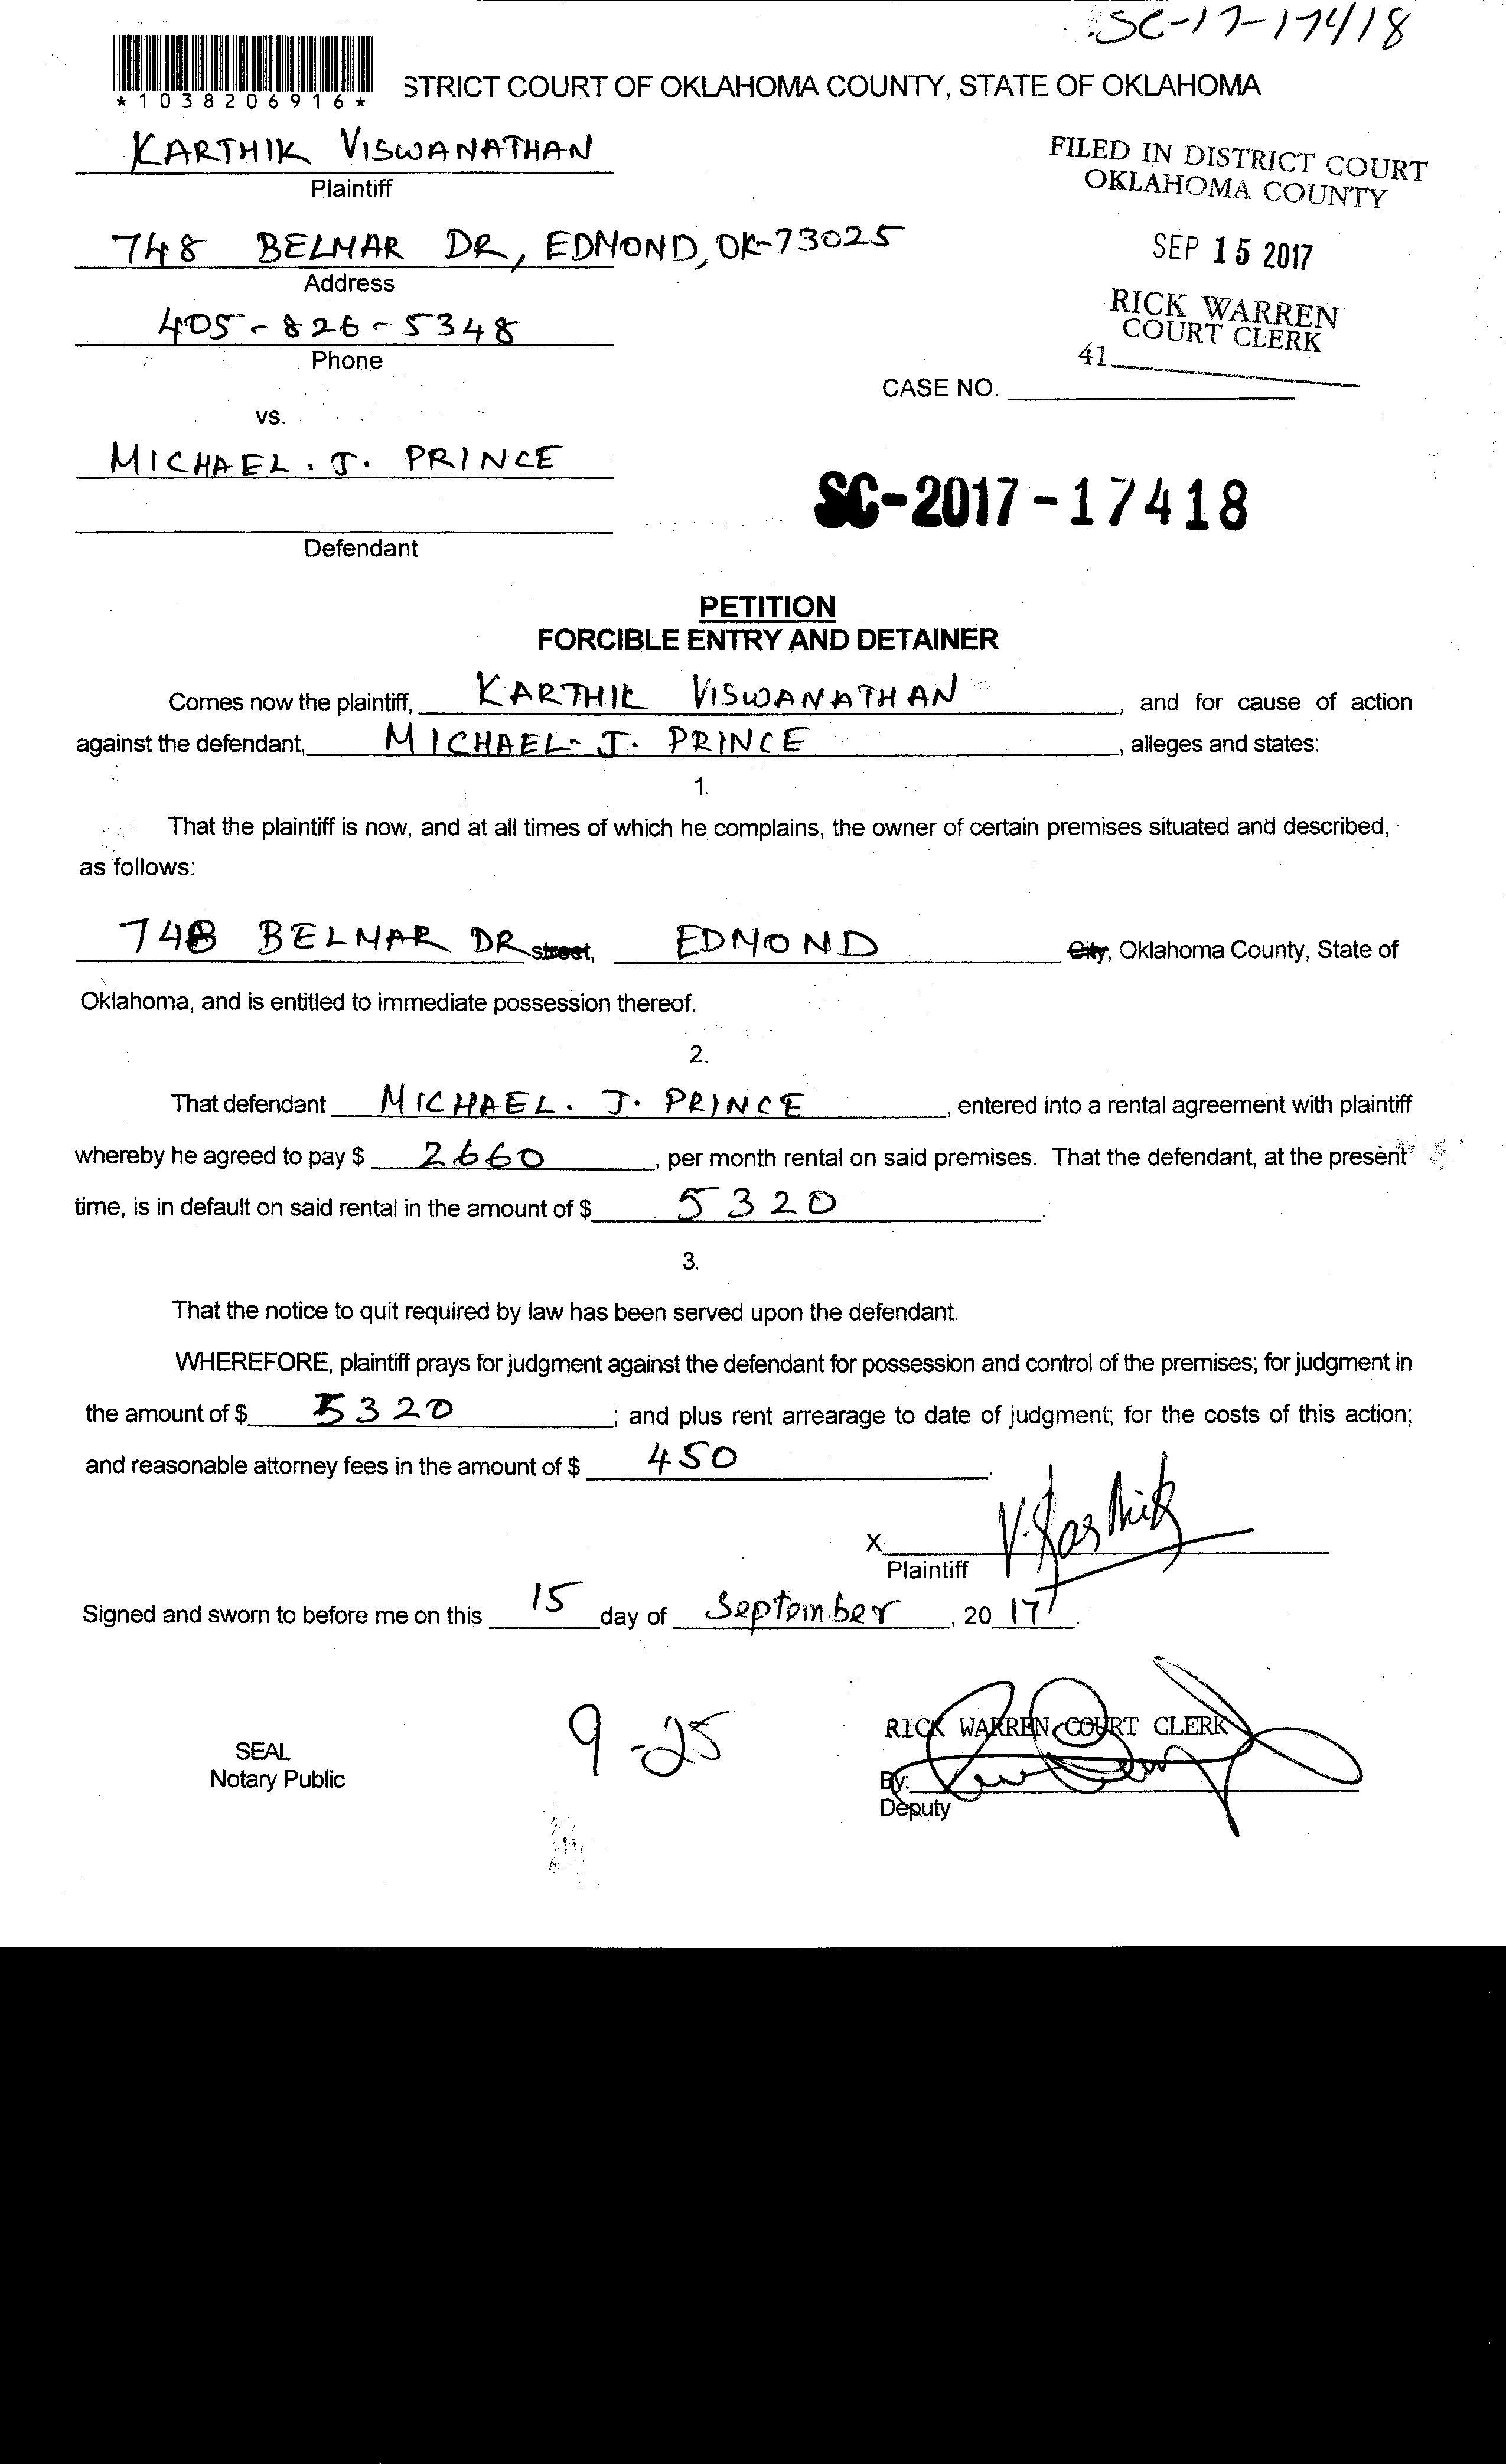 SC-17-17418
*1038206916*
STRICT COURT OF OKLAHOMA COUNTY, STATE OF OKLAHOMA
KARTHIK VISWANATHAN
Plaintiff
FILED IN DISTRICT COURT
OKLAHOMA COUNTY
748 BELMAR DR, EDMOND, OK-73025
Address
SEP 15 2017
405-826-5348
Phone
RICK WARREN
COURT CLERK
41
CASE NO.
vs.
MICHAEL. J. PRINCE
SC-2017-17418
Defendant
PETITION
FORCIBLE ENTRY AND DETAINER
Comes now the plaintiff, KARTHIK VISWANATHAN, and for cause of action
against the defendant, MICHAEL. J. PRINCE, alleges and states:
1.
That the plaintiff is now, and at all times of which he complains, the owner of certain premises situated and described,
as follows:
748 BELMAR DR street, EDMOND City, Oklahoma County, State of
Oklahoma, and is entitled to immediate possession thereof.
2.
That defendant MICHAEL. J. PRINCE, entered into a rental agreement with plaintiff
whereby he agreed to pay $ 2660, per month rental on said premises. That the defendant, at the present
time, is in default on said rental in the amount of $ 5320.
3.
That the notice to quit required by law has been served upon the defendant.
WHEREFORE, plaintiff prays for judgment against the defendant for possession and control of the premises; for judgment in
the amount of $ 5320; and plus rent arrearage to date of judgment; for the costs of this action;
and reasonable attorney fees in the amount of $ 450.
X V. Karthik
Plaintiff
Signed and sworn to before me on this 15 day of September, 2017.
9-25
RICK WARREN COURT CLERK
SEAL
Notary Public
By:
Deputy